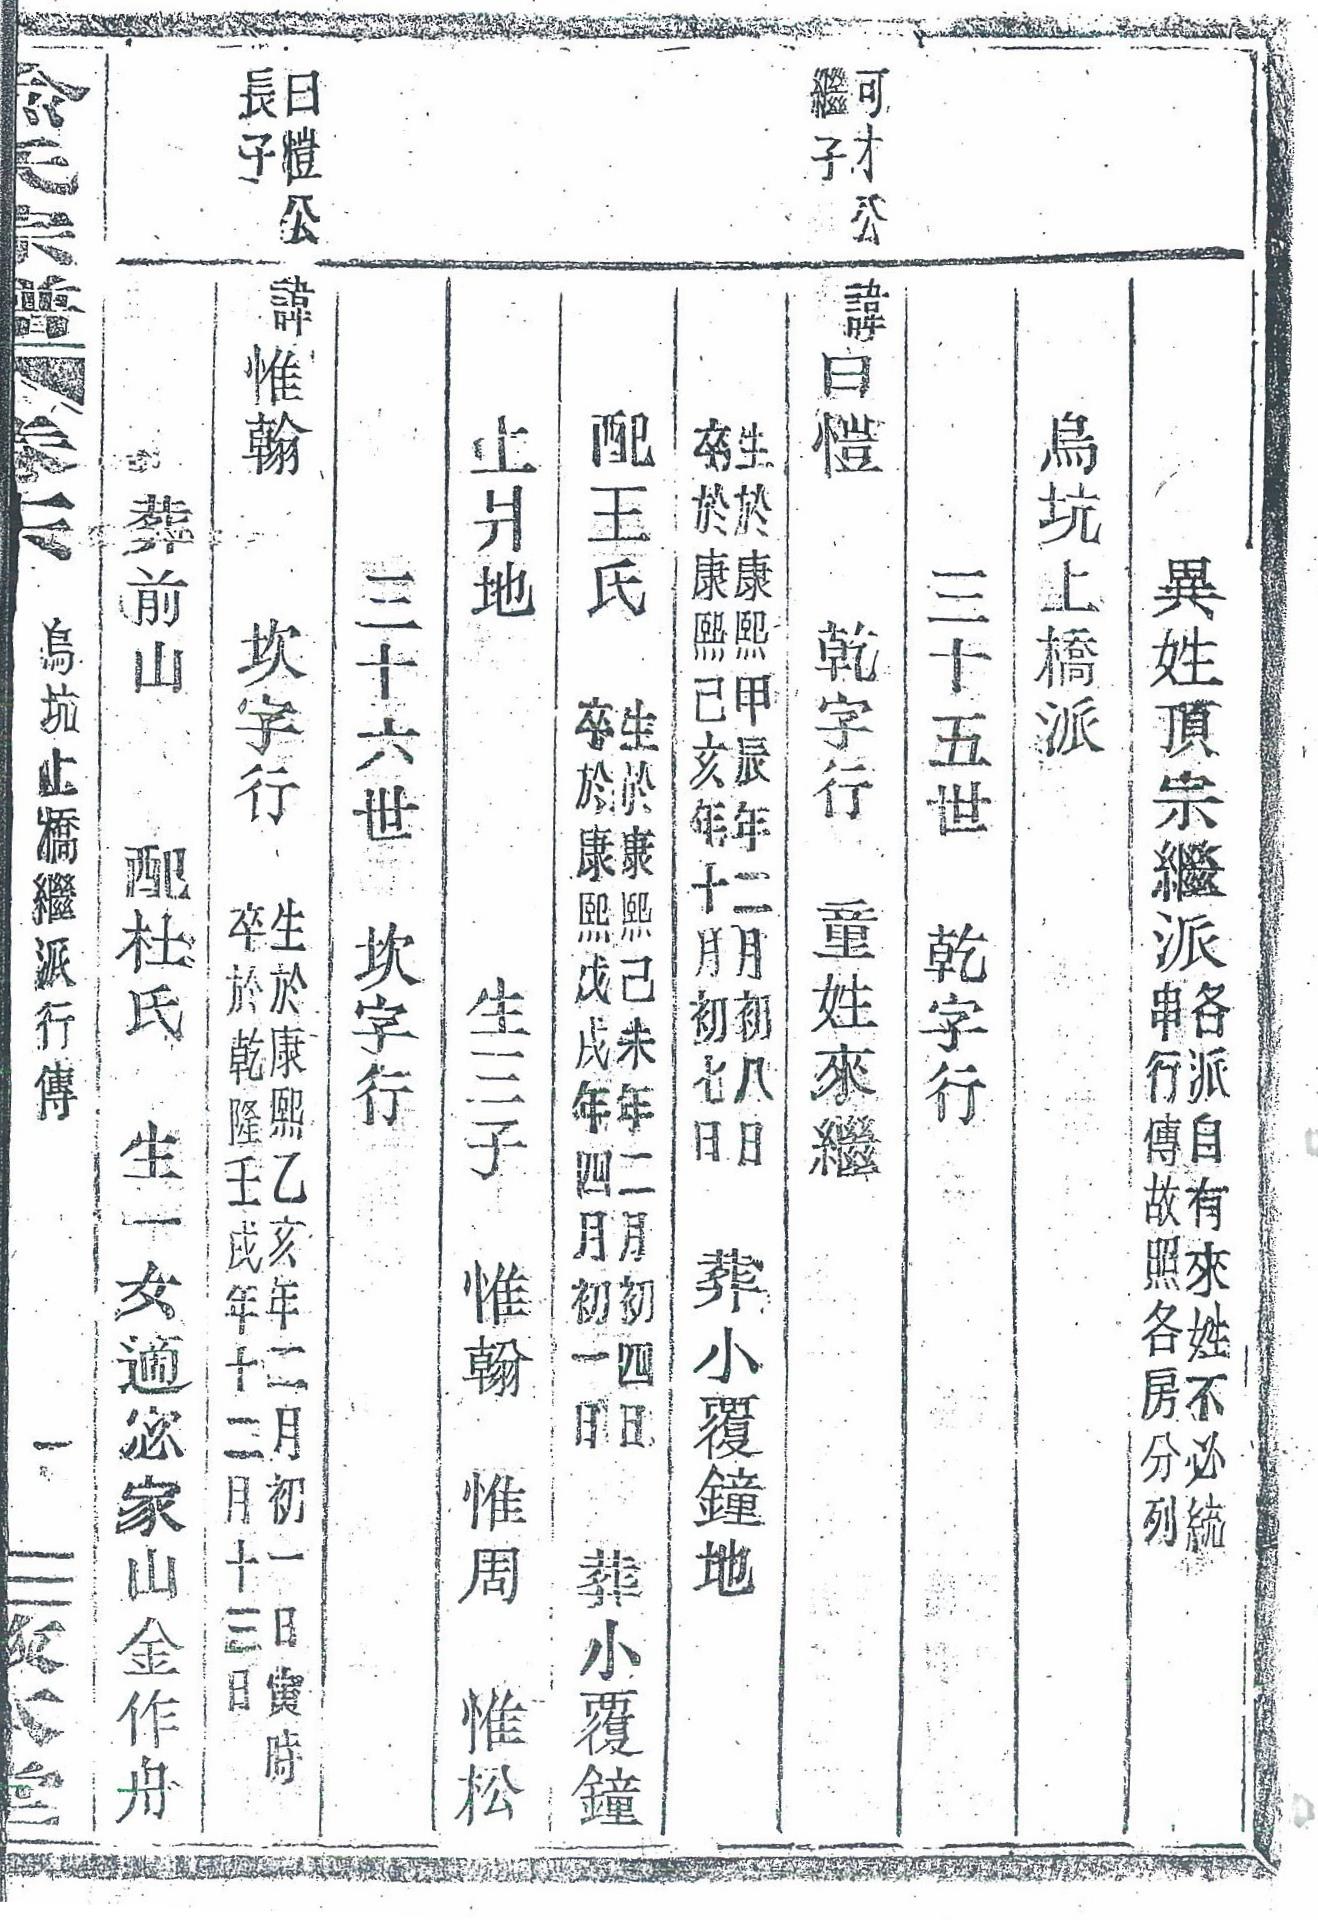 異姓頂宗繼派各派自有來姓不必統
串行傳故照各房分列
烏坑上橋派
三十五世 乾字行
可才公
繼子
諱曰愷 乾字行 童姓來繼
生於康熙甲辰年二月初八日
卒於康熙己亥年十月初七日 葬小覆鐘地
配王氏 生於康熙己未年二月初四日
卒於康熙戊戌年四月初一日 葬小覆鐘
上爿地 生三子 惟翰 惟周 惟松
三十六世 坎字行
曰愷公
長子
諱惟翰 坎字行 生於康熙乙亥年二月初一日寅時
卒於乾隆壬戌年十二月十三日
葬前山 配杜氏 生一女適宓家山金作舟
氏宗譜 卷六 烏坑上橋繼派行傳 一 三